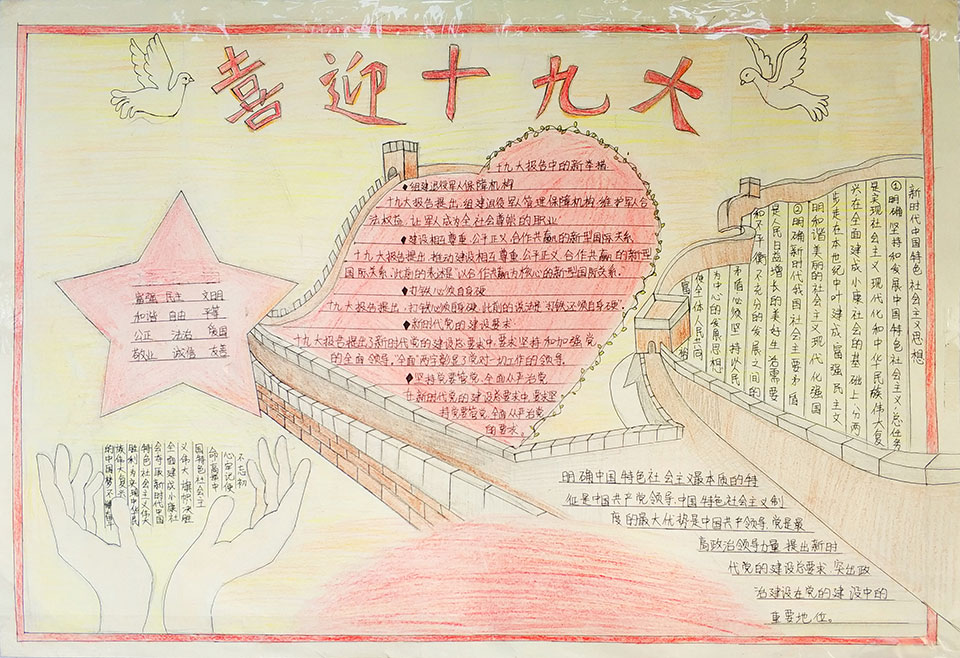 喜迎十九大
十九大报告中的新举措
♦组建退役军人保障机构
十九大报告提出,组建退役军人管理保障机构,维护军人合
法权益,让军人成为全社会尊崇的职业
♦建设相互尊重、公平正义、合作共赢的新型国际关系
十九大报告提出,推动建设相互尊重、公平正义、合作共赢的新型
国际关系,此前的表述是"以合作共赢为核心的新型国际关系.
♦打铁必须自身硬
十九大报告提出,打铁必须自身硬,此前的说法是"打铁还须自身硬"
♦新时代党的建设要求
十九大报告提出了新时代党的建设总要求中,要求坚持和加强党
的全面领导,"全面"两字彰显了党对一切工作的领导
♦坚持党要管党,全面从严治党
在新时代党的建设总要求中,要求坚
持党要管党,全面从严治党
的要求。
富强 民主 文明
和谐 自由 平等
公正 法治 爱国
敬业 诚信 友善
新时代中国特色社会主义思想
①明确坚持和发展中国特色社会主义,总任务
是实现社会主义现代化和中华民族伟大复
兴,在全面建成小康社会的基础上,分两
步走在本世纪中叶建成富强民主文
明和谐美丽的社会主义现代化强国
②明确新时代我国社会主要矛盾
是人民日益增长的美好生活需要
和不平衡不充分的发展之间的
矛盾必须坚持以人民
为中心的发展思想
使全体人民共同
富裕
不忘初
心牢记使
命高举中
国特色社会主
义伟大旗帜决胜
全面建成小康社
会夺取新时代中国
特色社会主义伟大
胜利为实现中华民
族伟大复兴
的中国梦不懈奋斗
明确中国特色社会主义最本质的特
征是中国共产党领导,中国特色社会主义制
度的最大优势是中国共产党领导,党是最
高政治领导力量,提出新时
代党的建设总要求,突出政
治建设在党的建设中的
重要地位。